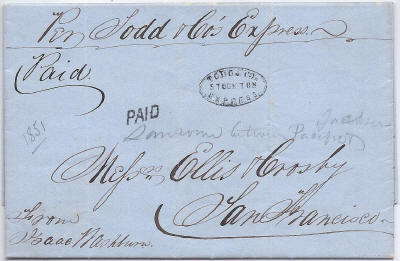 Per Todd & Co's Express
Paid.
TODD & CO.
STOCKTON
EXPRESS
PAID
1851
Jackson
Sansome between Pacific &
Messrs Ellis & Crosby
San Francisco
From
Isaac Washburn.